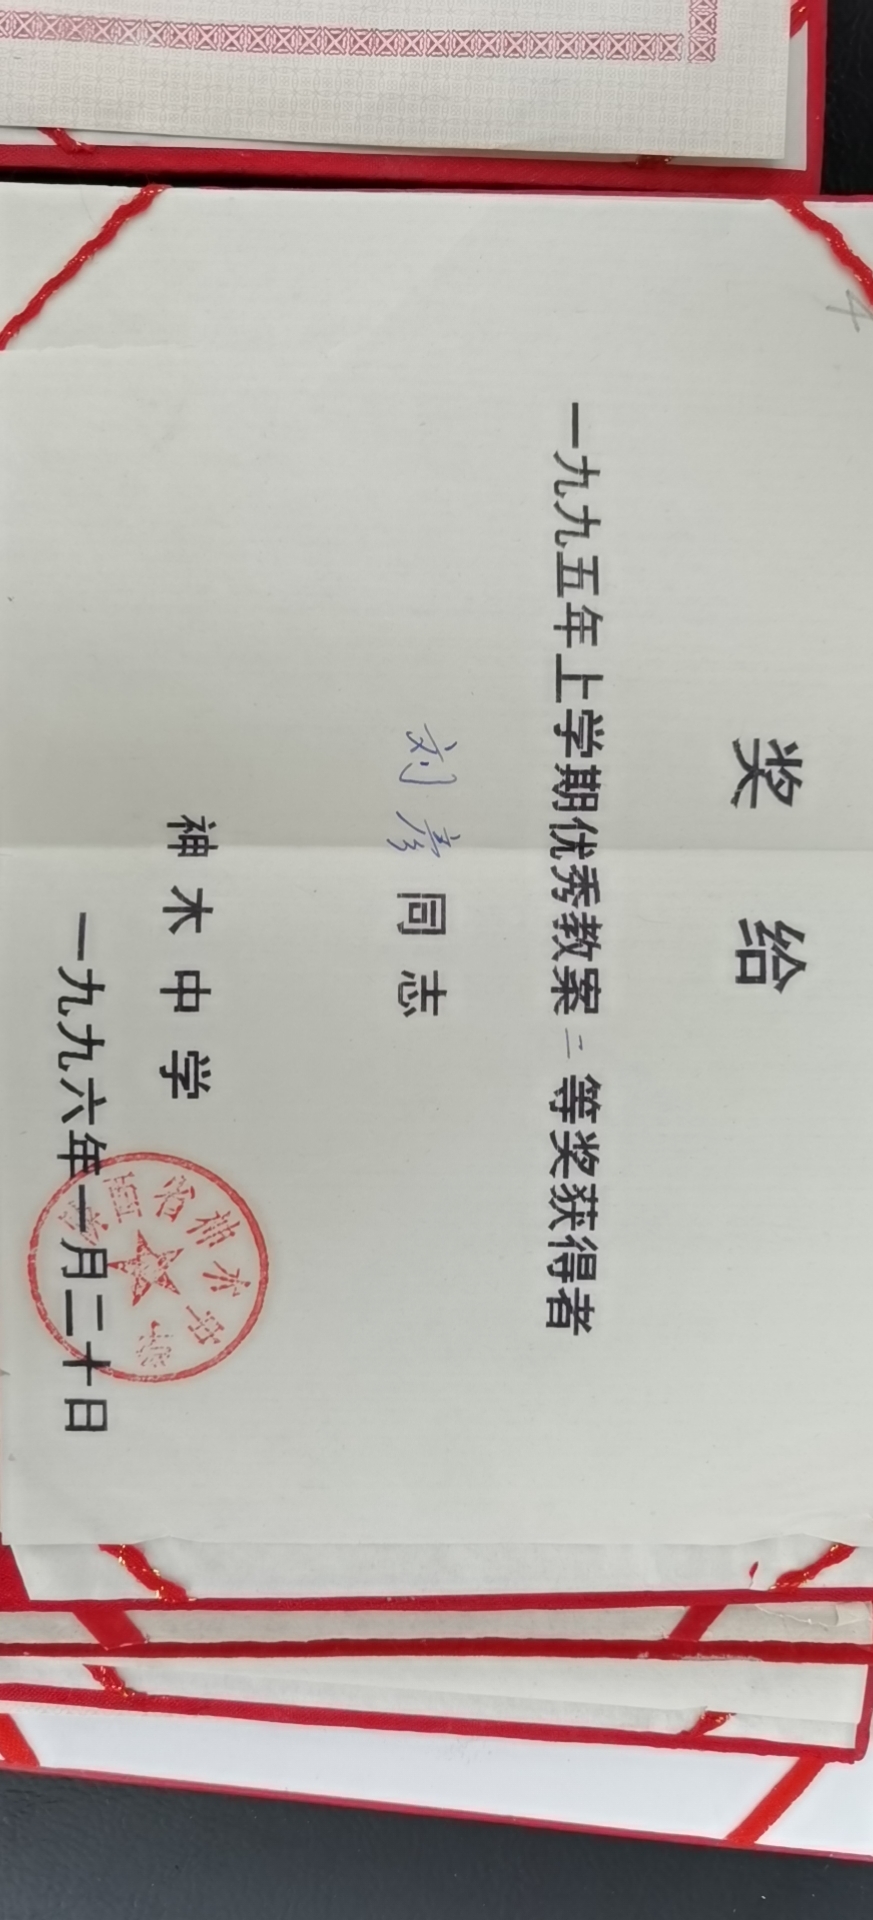 4
奖给
一九九五年上学期优秀教案二等奖获得者
刘彦同志
神木中学
一九九六年一月二十日
陕西省神木中学